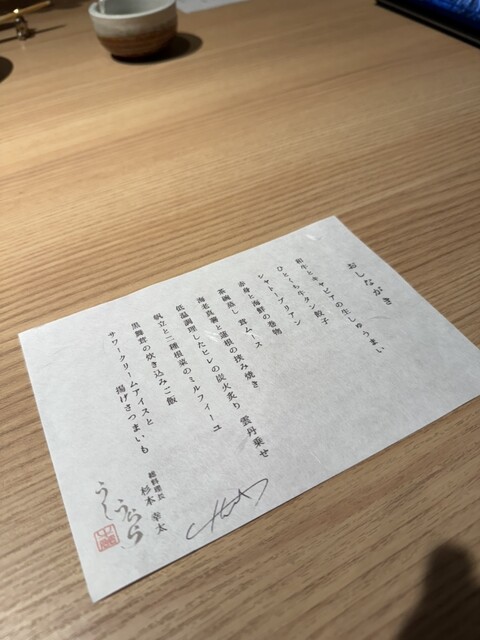 おしながき
和牛とキャビアの生しゅうまい
ひとくち牛タン餃子
シャトーブリアン
赤身と海鮮の巻物
茶碗蒸し 茸ムース
海老真薯と蓮根の挟み焼き
低温調理したヒレの炭火炙り 雲丹乗せ
帆立と二種根菜のミルフィーユ
黒舞茸の炊き込みご飯
サワークリームアイスと
揚げさつまいも
総料理長
杉本 幸太